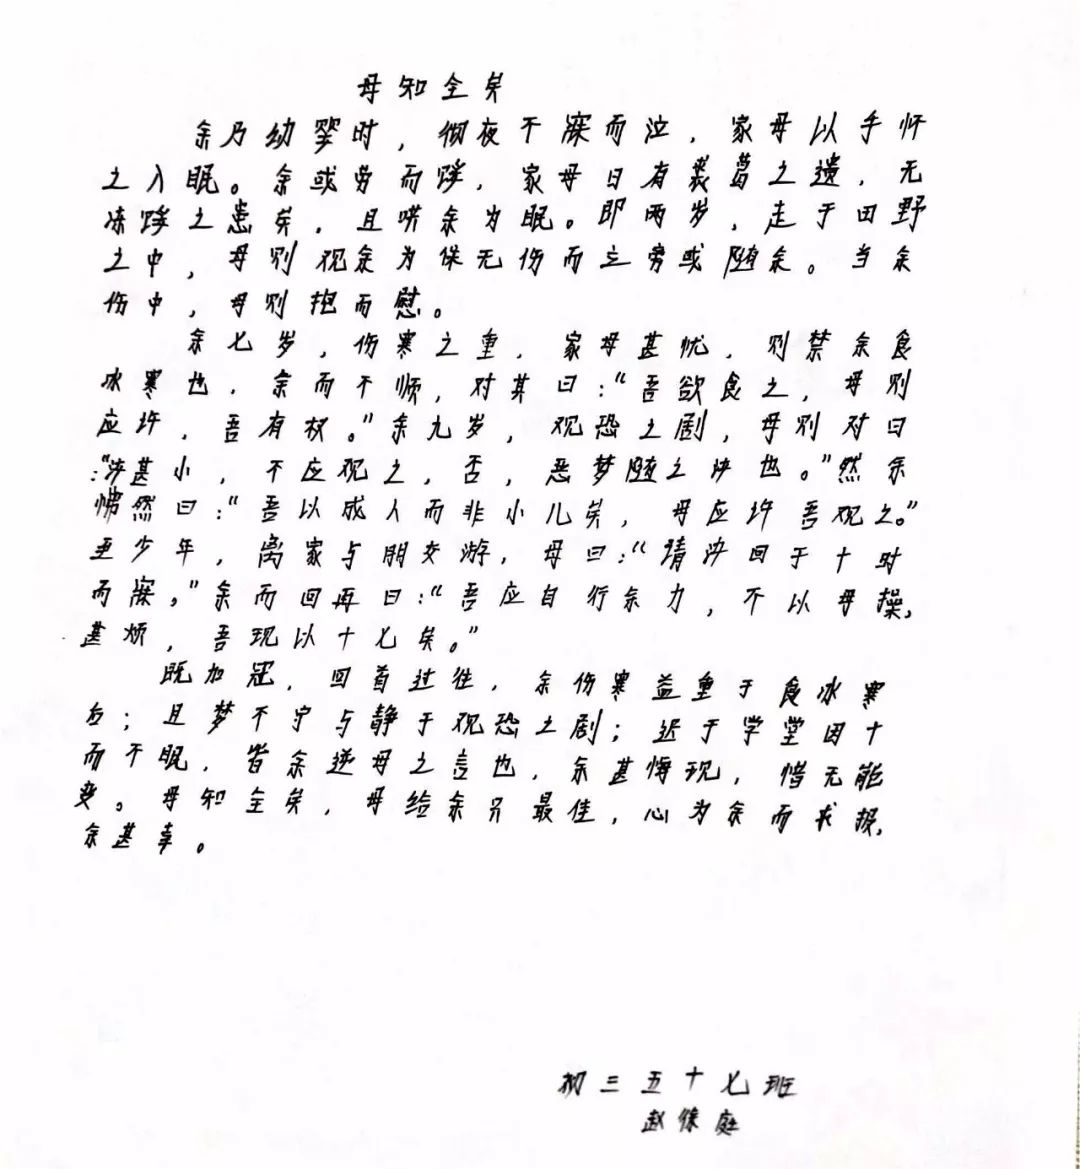 母知全矣
余乃幼婴时，彻夜不寐而泣，家母以手怀
之入眠。余或劳而哆，家母日有裘葛之遗，无
冻哆之患矣，且哄余为眠。即两岁，走于田野
之中，母则观余为保无伤而立旁或随余。当余
伤中，母则抱而慰。
余七岁，伤寒之重，家母甚忧，则禁余食
冰寒也，余而不顺，对其曰：“吾欲食之，母则
应许，吾有权。”余九岁，观恐之剧，母则对曰
：“汝甚小，不应观之，否，恶梦随之汝也。”然余
怫然曰：“吾以成人而非小儿矣，母应许吾观之。”
至少年，离家与朋交游，母曰：“请汝回于十时
而寐。”余而回再曰：“吾应自行余力，不以母操，
甚烦，吾现以十七矣。”
既加冠，回首过往，余伤寒益重于食冰寒
后；且梦不宁与静于观恐之剧；迟于学堂因十
而不眠，皆余逆母之言也，余甚悔现，惜无能
变。母知全矣，母给余另最佳，心为余而求报，
余甚幸。
初三五十七班
赵保庭